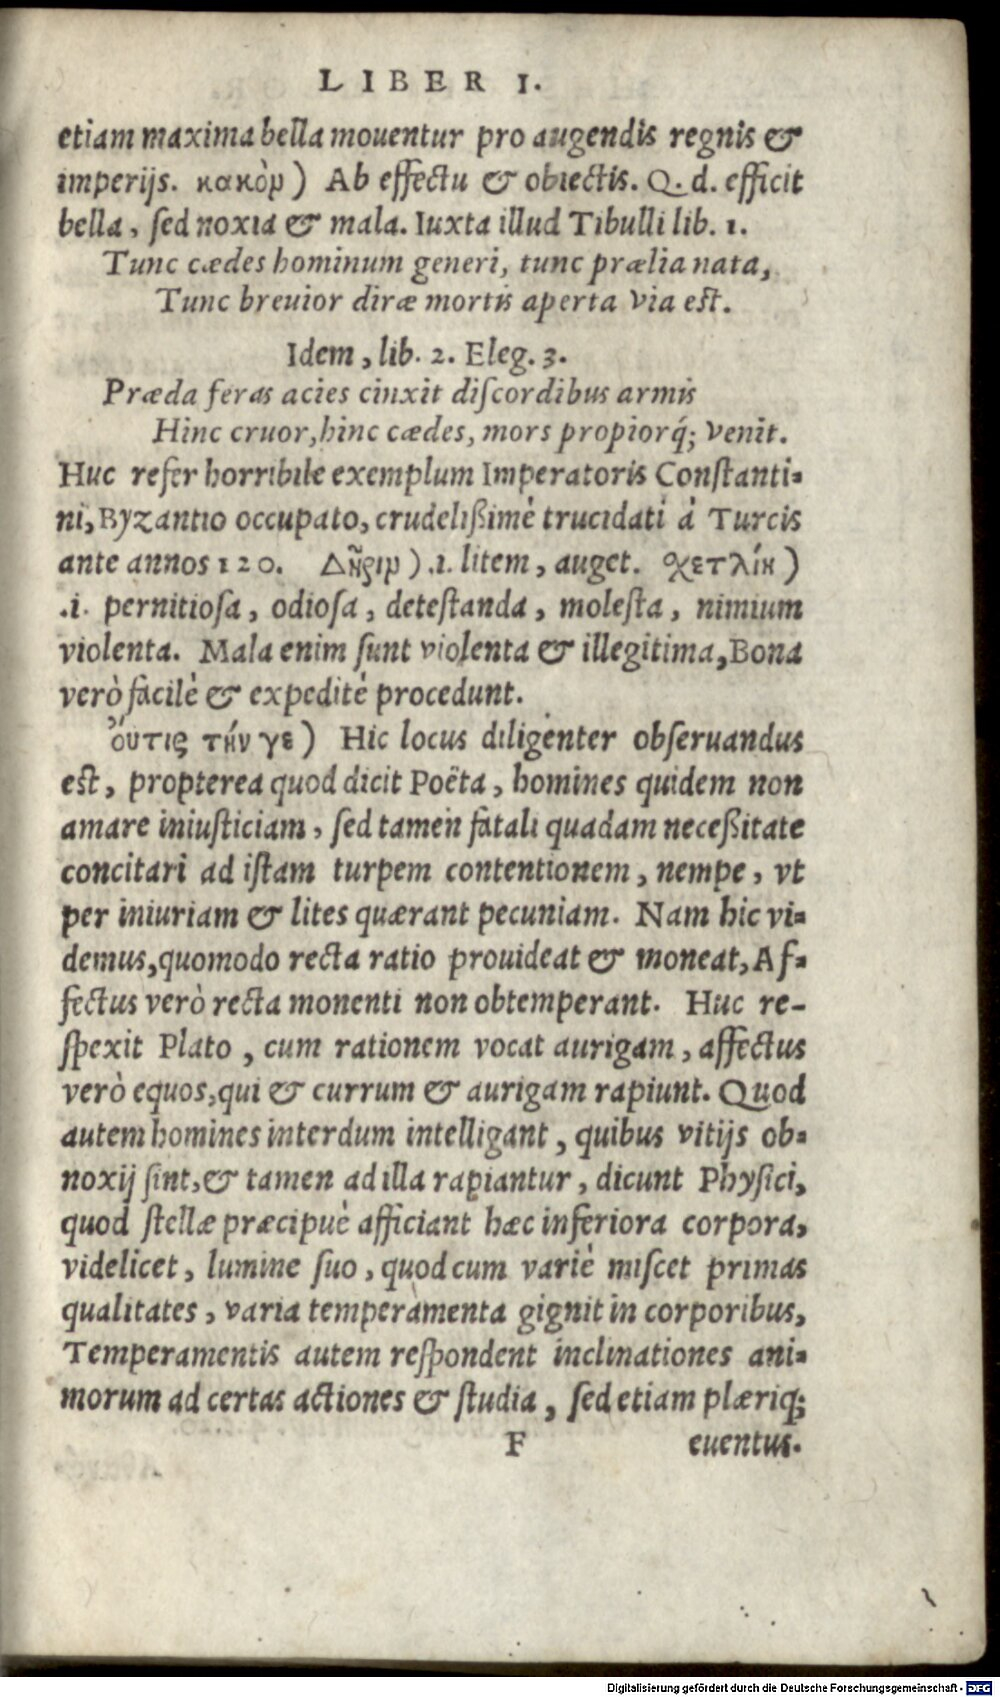 LIBER I.
etiam maxima bella mouentur pro augendis regnis &
imperijs. κακὸν) Ab effectu & obiectis. Q. d. efficit
bella, sed noxia & mala. Iuxta illud Tibulli lib. 1.
Tunc cædes hominum generi, tunc prælia nata,
Tunc breuior diræ mortis aperta via est.
Idem, lib. 2. Eleg. 3.
Præda feras acies cinxit discordibus armis
Hinc cruor, hinc cædes, mors propiorq́; venit.
Huc refer horribile exemplum Imperatoris Constanti-
ni, Byzantio occupato, crudelißimè trucidati à Turcis
ante annos 120. Δῆριν) .i. litem, auget. σχετλίη)
.i. pernitiosa, odiosa, detestanda, molesta, nimium
violenta. Mala enim sunt violenta & illegitima, Bona
verò facilè & expeditè procedunt.
οὔτις τήν γε) Hic locus diligenter obseruandus
est, propterea quod dicit Poëta, homines quidem non
amare iniusticiam, sed tamen fatali quadam neceßitate
concitari ad istam turpem contentionem, nempe, vt
per iniuriam & lites quærant pecuniam. Nam hic vi-
demus, quomodo recta ratio prouideat & moneat, Af-
fectus verò recta monenti non obtemperant. Huc re-
spexit Plato, cum rationem vocat aurigam, affectus
verò equos, qui & currum & aurigam rapiunt. Quod
autem homines interdum intelligant, quibus vitijs ob-
noxij sint, & tamen ad illa rapiantur, dicunt Physici,
quod stellæ præcipuè afficiant hæc inferiora corpora,
videlicet, lumine suo, quod cum variè miscet primas
qualitates, varia temperamenta gignit in corporibus,
Temperamentis autem respondent inclinationes ani-
morum ad certas actiones & studia, sed etiam plæriq;
F euentus.
Digitalisierung gefördert durch die Deutsche Forschungsgemeinschaft - DFG